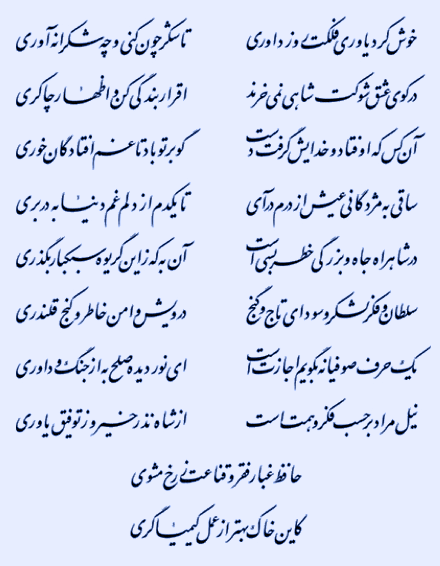 خوش کرد یاوری فلکت روز داوری تا شکر چون کنی و چه شکرانه آوری
در کوی عشق شوکت شاهی نمی‌خرند اقرار بندگی کن و اظهار چاکری
آن کس که اوفتاد و خدایش گرفت دست گو بر تو باد تا غم افتادگان خوری
ساقی به مژدگانی عیش از درم درآی تا یک دم از دلم غم دنیا به در بری
در شاهراه جاه و بزرگی خطر بسی است آن به که زین گریوه سبکبار بگذری
سلطان و فکر لشکر و سودای تاج و گنج درویش و امن خاطر و کنج قلندری
یک حرف صوفیانه بگویم اجازت است ای نور دیده صلح به از جنگ و داوری
نیل مراد بر حسب فکر و همت است از شاه نذر خیر و ز توفیق یاوری
حافظ غبار فقر و قناعت ز رخ مشوی
کاین خاک بهتر از عمل کیمیاگری